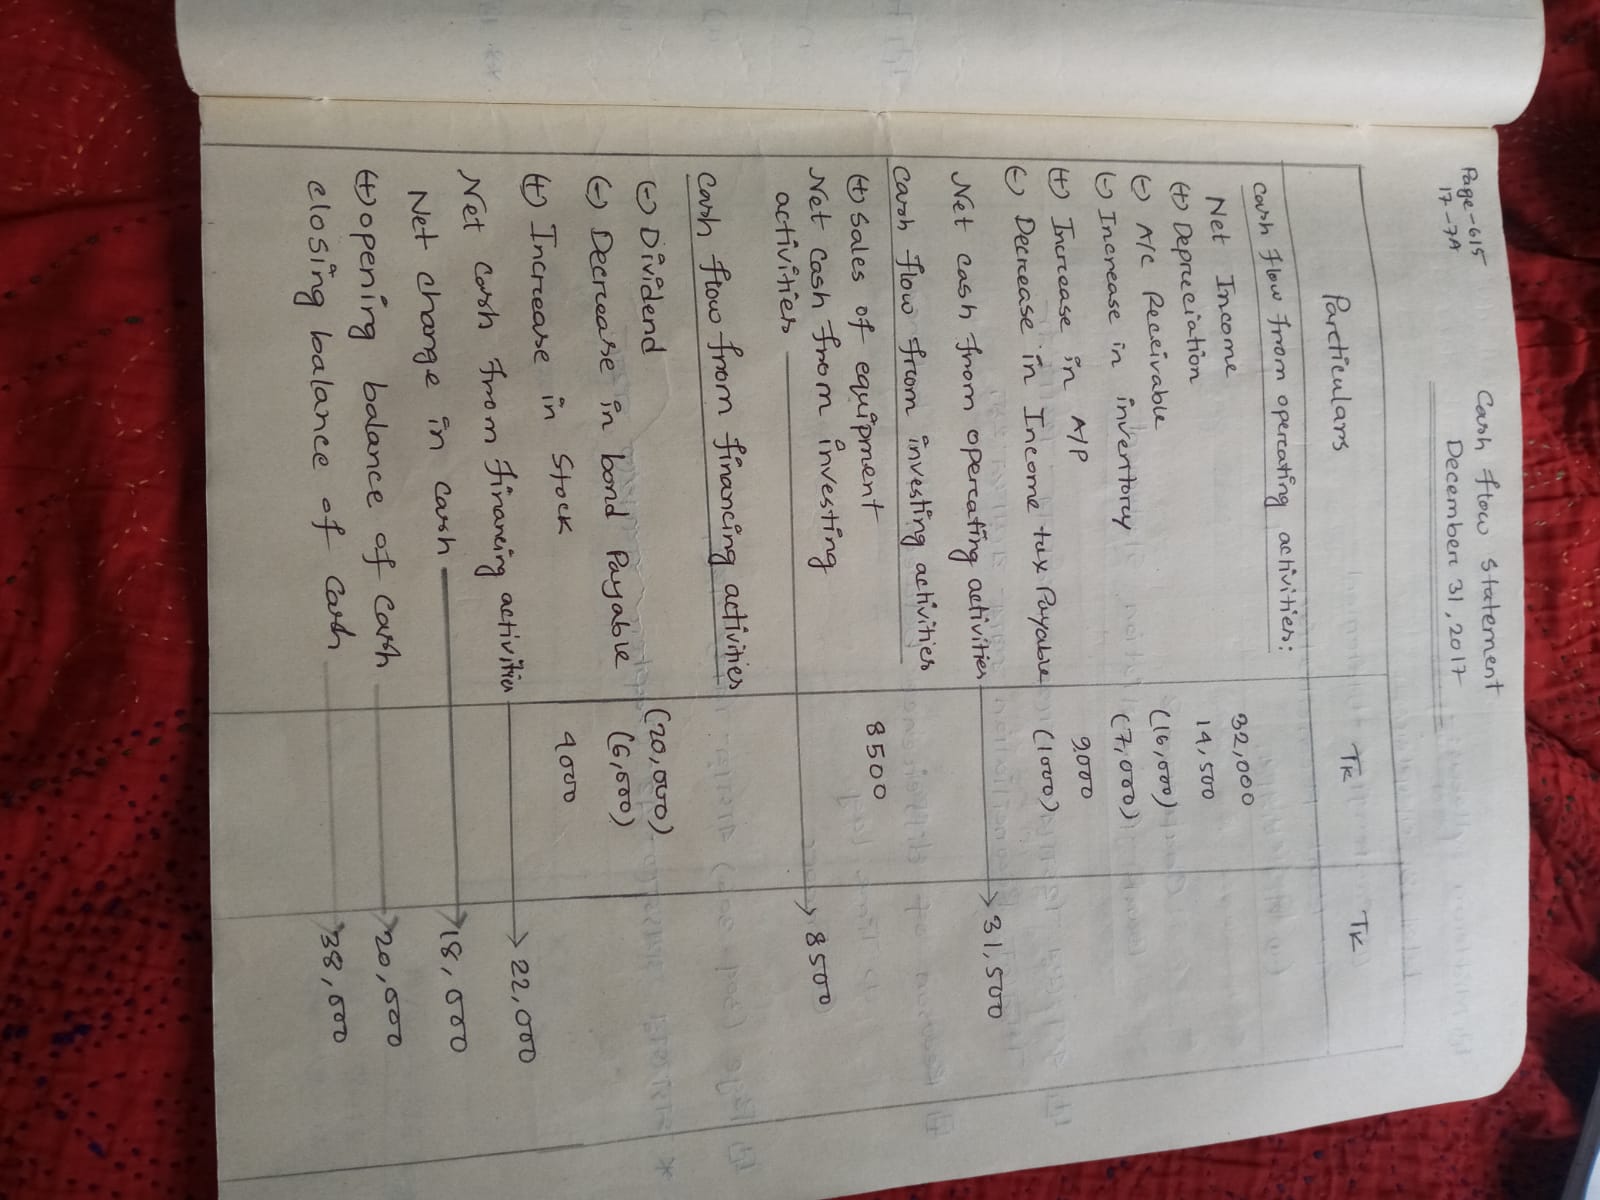 Page-615
17-7A
Cash flow statement
December 31, 2017
Particulars TK TK
Cash flow from operating activities:
Net Income 32,000
(+) Depreciation 14,500
(-) A/c Receivable (16,000)
(-) Increase in inventory (7,000)
(+) Increase in A/P 9,000
(-) Decrease in Income tax Payable (1000)
Net cash from operating activities 31,500
Cash flow from investing activities
(+) Sales of equipment 8500
Net cash from investing
activities 8500
Cash flow from financing activities
(-) Dividend (20,000)
(-) Decrease in bond Payable (6,000)
(+) Increase in Stock 4000
Net cash from financing activities 22,000
Net change in cash 18,000
(+) opening balance of cash 20,000
closing balance of cash 38,000